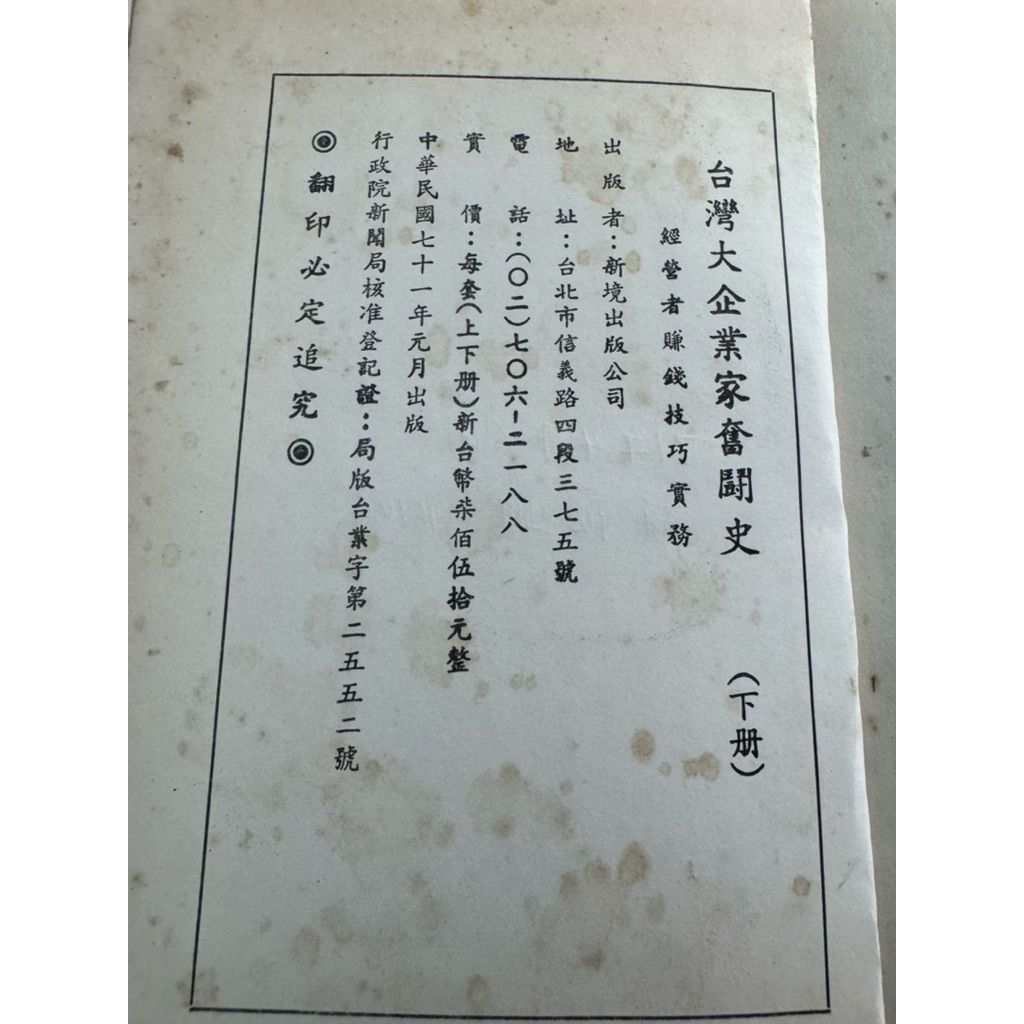 台灣大企業家奮鬪史（下册）
經營者賺錢技巧實務
出版者：新境出版公司
地址：台北市信義路四段三七五號
電話：（〇二）七〇六－二一八八
實價：每套（上下册）新台幣柒佰伍拾元整
中華民國七十一年元月出版
行政院新聞局核准登記證：局版台業字第二五五二號
翻印必定追究